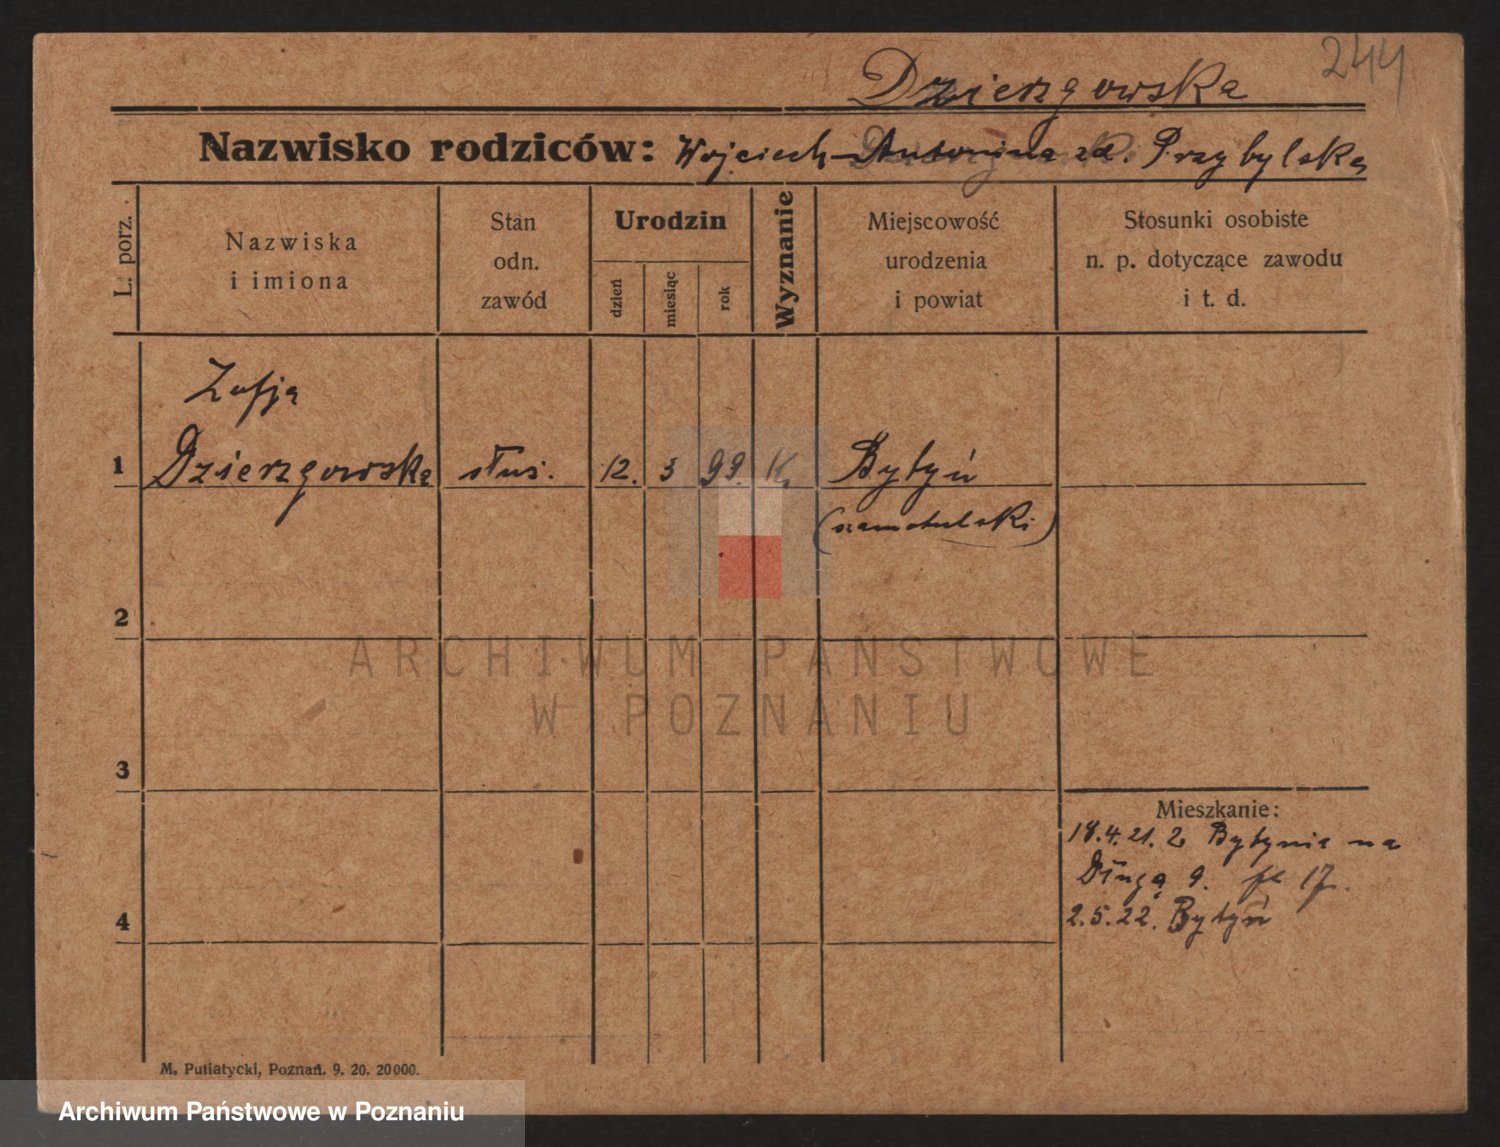 244
Dzierzgowska
Nazwisko rodziców: Wojciech - Antonina zd. Przybylska
L. porz.
Nazwiska
i imiona
Stan
odn.
zawód
Urodzin
dzień
miesiąc
rok
Wyznanie
Miejscowość
urodzenia
i powiat
Stosunki osobiste
n. p. dotyczące zawodu
i t. d.
Zofja
1 Dzierzgowska służ. 12. 3 99. K. Bytyń
(szamotulski)
2
ARCHIWUM PAŃSTWOWE
W POZNANIU
3
Mieszkanie:
18.4.21. z Bytynia na
Długą 9. pl 17.
4
2.5.22. Bytyń
M. Putiatycki, Poznań. 9. 20. 20000.
Archiwum Państwowe w Poznaniu